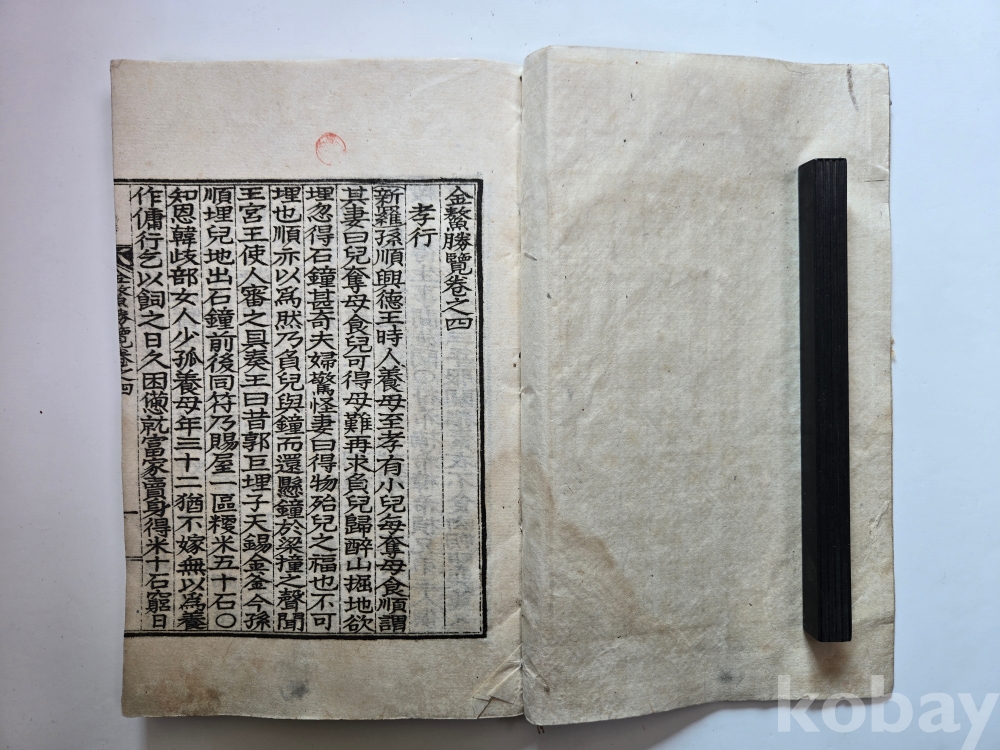 金鰲勝覽卷之四
孝行
新羅孫順興德王時人養母至孝有小兒每奪母食順謂
其妻曰兒奪母食兒可得母難再求負兒歸醉山掘地欲
埋忽得石鐘甚奇夫婦驚怪妻曰得物殆兒之福也不可
埋也順亦以爲然乃負兒與鐘而還懸鐘於梁撞之聲聞
王宮王使人審之具奏王曰昔郭巨埋子天錫金釜今孫
順埋兒地出石鐘前後同符乃賜屋一區粳米五十石〇
知恩韓歧部女人少孤養母年三十二猶不嫁無以爲養
作傭行乞以飼之日久困憊就富家賣身得米十石窮日
金鰲勝覽卷之四
kobay